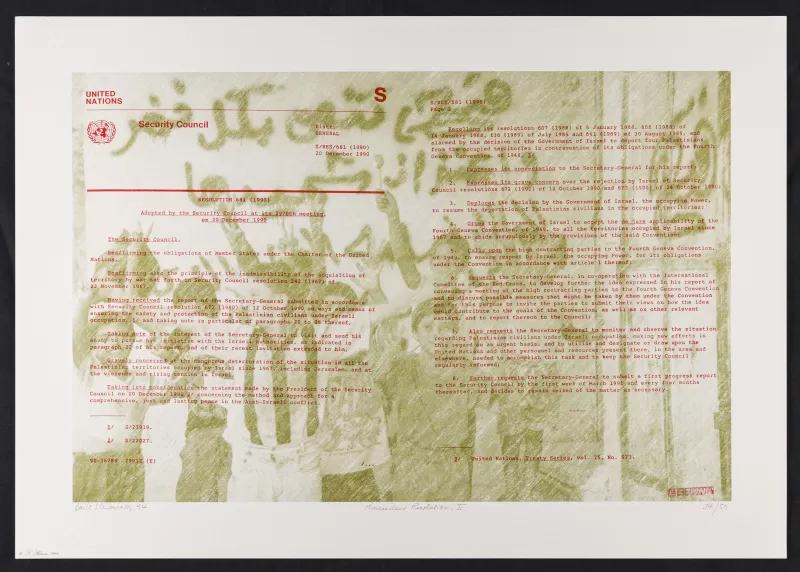 UNITED
NATIONS
S
Security Council
Distr.
GENERAL
S/RES/681 (1990)
20 December 1990
RESOLUTION 681 (1990)
Adopted by the Security Council at its 2970th meeting,
on 20 December 1990
The Security Council,
Reaffirming the obligations of Member States under the Charter of the United
Nations,
Reaffirming also the principle of the inadmissibility of the acquisition of
territory by war set forth in Security Council resolution 242 (1967) of
22 November 1967,
Having received the report of the Secretary-General submitted in accordance
with Security Council resolution 672 (1990) of 12 October 1990 on ways and means of
ensuring the safety and protection of the Palestinian civilians under Israeli
occupation, 1/ and taking note in particular of paragraphs 20 to 26 thereof,
Taking note of the interest of the Secretary-General to visit and send his
envoy to pursue his initiative with the Israeli authorities, as indicated in
paragraph 22 of his report, and of their recent invitation extended to him,
Gravely concerned at the dangerous deterioration of the situation in all the
Palestinian territories occupied by Israel since 1967, including Jerusalem, and at
the violence and rising tension in Israel,
Taking into consideration the statement made by the President of the Security
Council on 20 December 1990 2/ concerning the method and approach for a
comprehensive, just and lasting peace in the Arab-Israeli conflict,
1/ S/21919.
2/ S/22027.
/...
S/RES/681 (1990)
Page 2
Recalling its resolutions 607 (1988) of 5 January 1988, 608 (1988) of
14 January 1988, 636 (1989) of July 1989 and 641 (1989) of 30 August 1989, and
alarmed by the decision of the Government of Israel to deport four Palestinians
from the occupied territories in contravention of its obligations under the Fourth
Geneva Convention, of 1949, 3/
1. Expresses its appreciation to the Secretary-General for his report;
2. Expresses its grave concern over the rejection by Israel of Security
Council resolutions 672 (1990) of 12 October 1990 and 673 (1990) of 24 October 1990;
3. Deplores the decision by the Government of Israel, the occupying Power,
to resume the deportation of Palestinian civilians in the occupied territories;
4. Urges the Government of Israel to accept the de jure applicability of the
Fourth Geneva Convention, of 1949, to all the territories occupied by Israel since
1967 and to abide scrupulously by the provisions of the said Convention;
5. Calls upon the high contracting parties to the Fourth Geneva Convention,
of 1949, to ensure respect by Israel, the occupying Power, for its obligations
under the Convention in accordance with article 1 thereof;
6. Requests the Secretary-General, in co-operation with the International
Committee of the Red Cross, to develop further the idea expressed in his report of
convening a meeting of the high contracting parties to the Fourth Geneva Convention
and to discuss possible measures that might be taken by them under the Convention
and for this purpose to invite the parties to submit their views on how the idea
could contribute to the goals of the Convention, as well as on other relevant
matters, and to report thereon to the Council;
Also requests the Secretary-General to monitor and observe the situation
regarding Palestinian civilians under Israeli occupation, making new efforts in
this regard on an urgent basis, and to utilize and designate or draw upon the
United Nations and other personnel and resources present there, in the area and
elsewhere, needed to accomplish this task and to keep the Security Council
regularly informed;
8. Further requests the Secretary-General to submit a first progress report
to the Security Council by the first week of March 1991 and every four months
thereafter, and decides to remain seized of the matter as necessary.
3/ United Nations, Treaty Series, vol. 75, No. 973.
Resolution, II